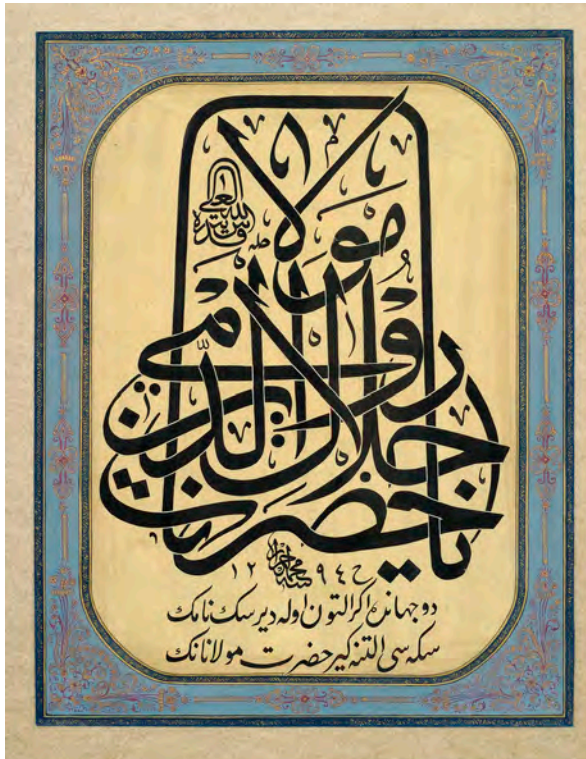 يا حضرت مولانا جلال الدين رومي
قدس الله سره العلى
١٢٩٤
دو جهانده اكر التون اوله ديرسك نامك
سكه سى التنه كير حضرت مولانانك